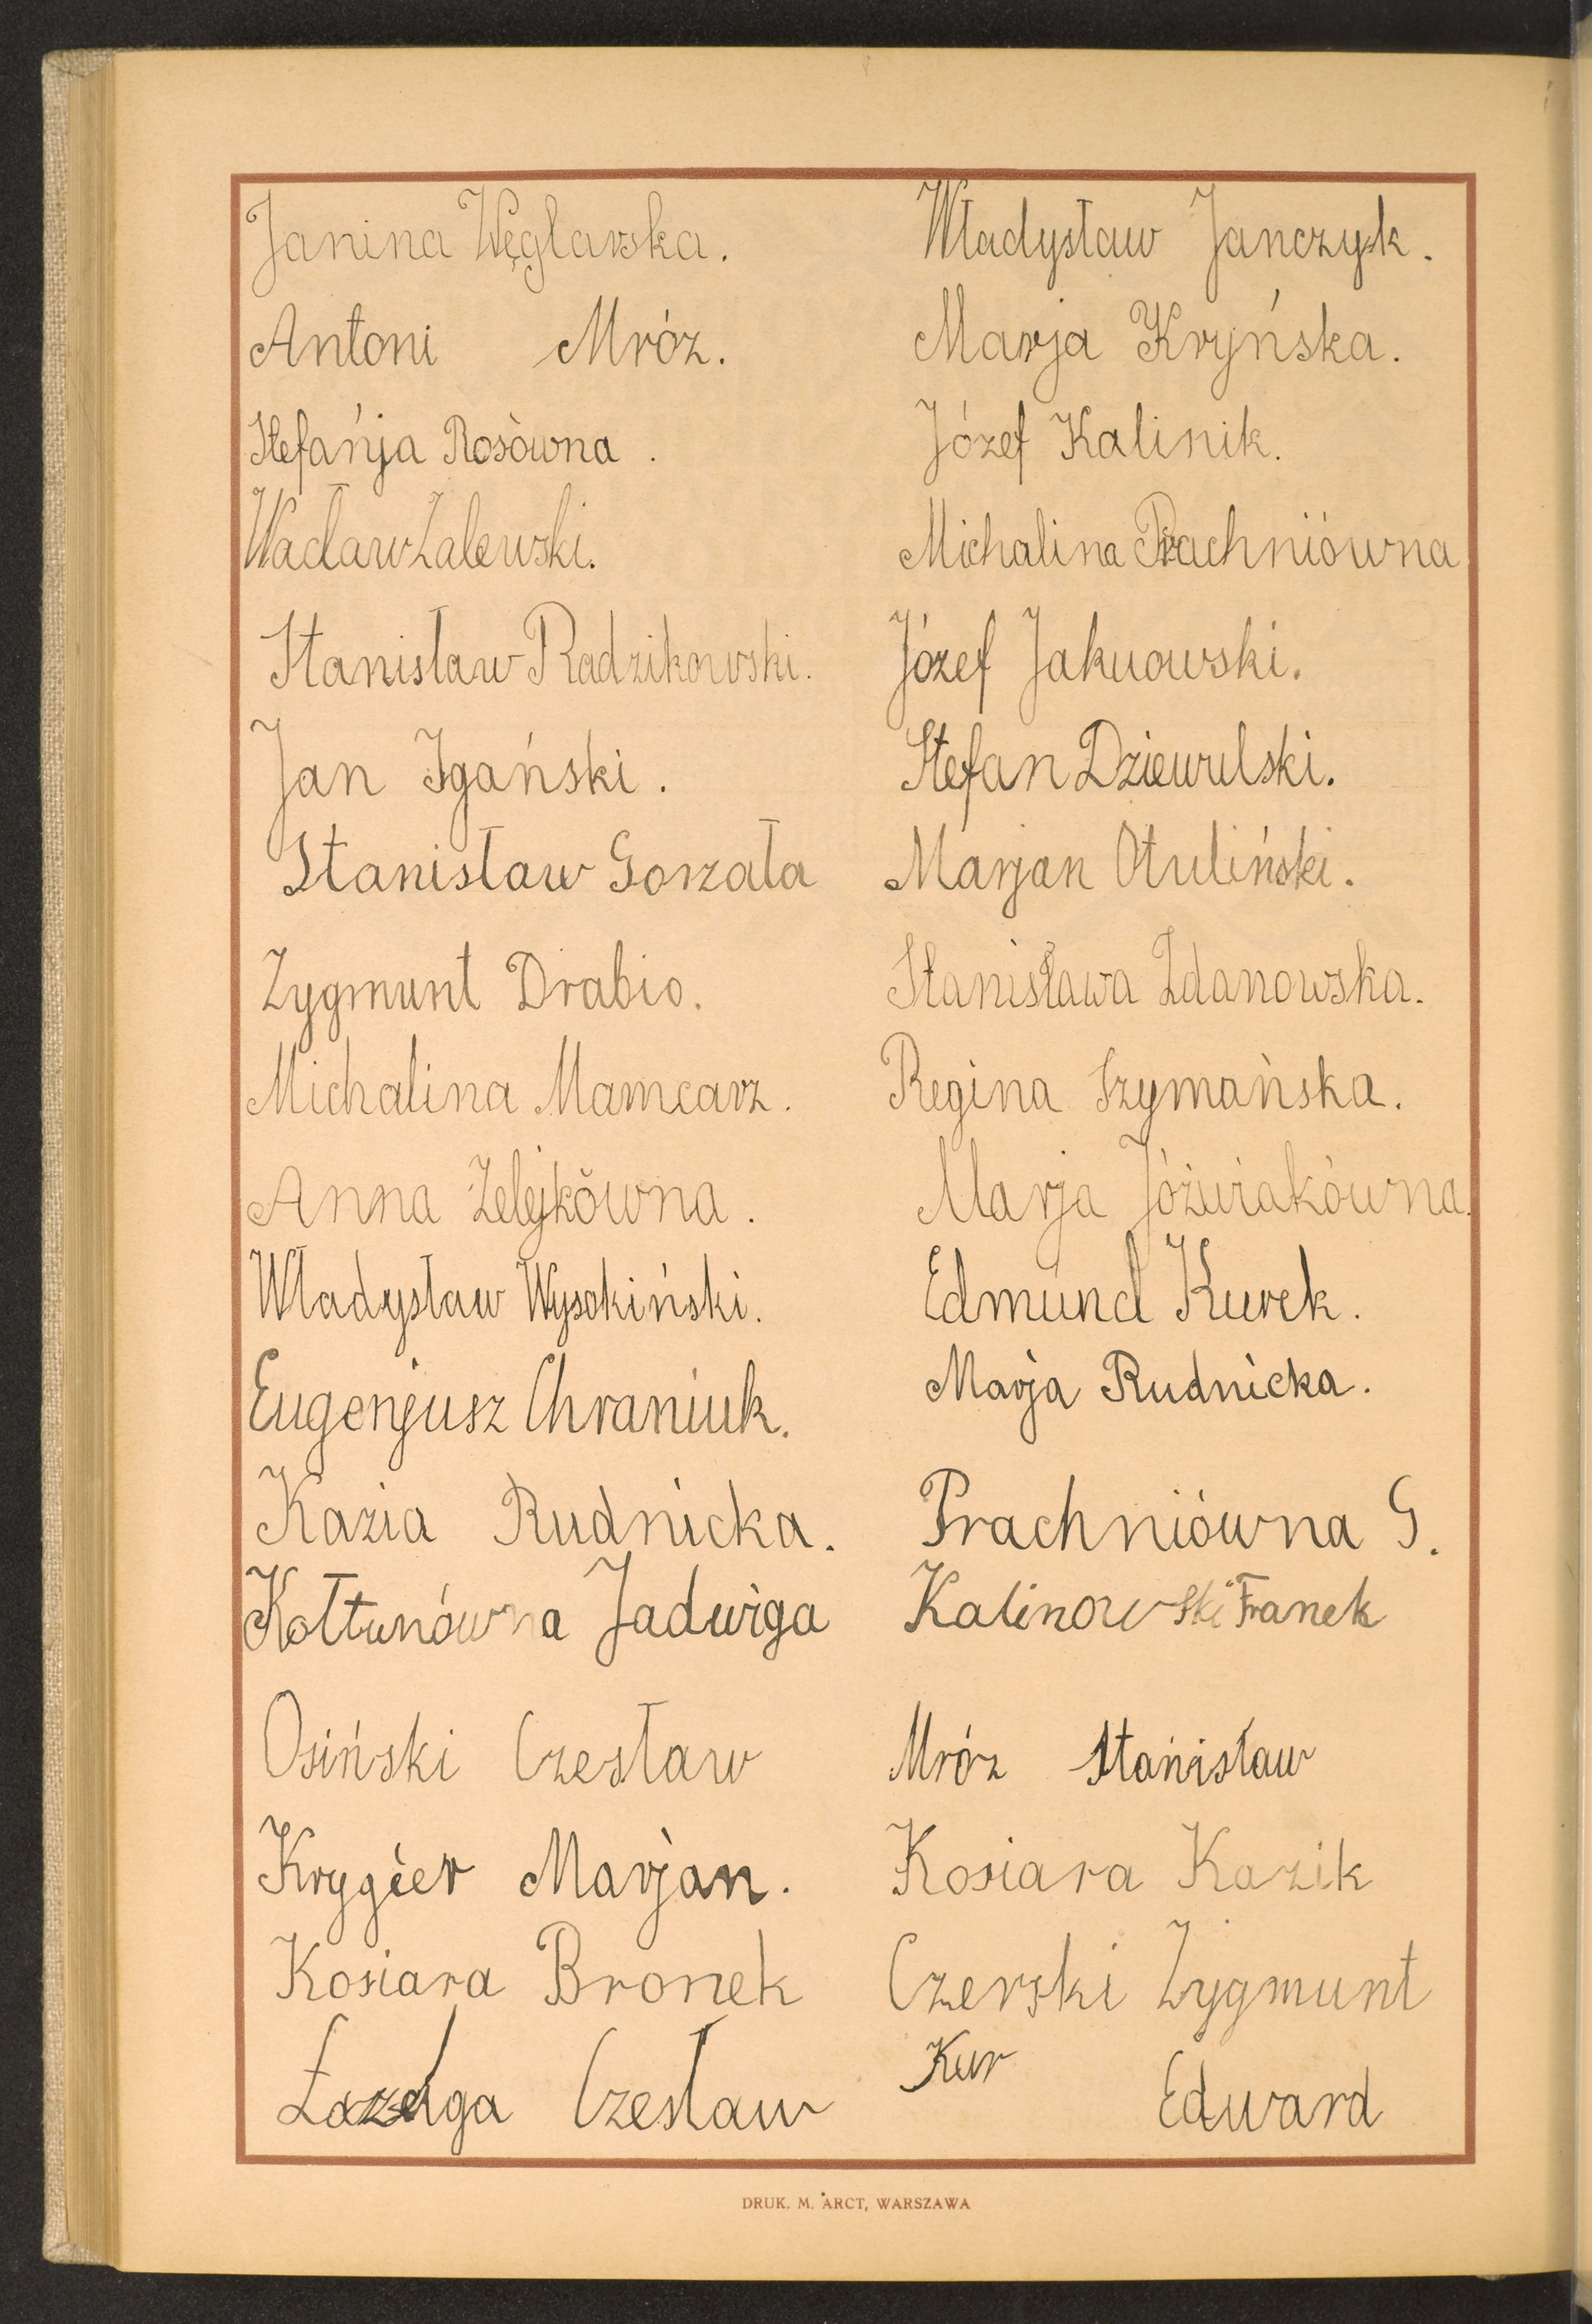 Janina Węglarska.
Antoni Mróz.
Stefańja Rosówna.
Wacław Zalewski.
Stanisław Radzikowski.
Jan Igański.
Stanisław Gorzała
Zygmunt Drabio.
Michalina Mamcarz.
Anna Żelejkówna.
Władysław Wysokiński.
Eugenjusz Chraniuk.
Kazia Rudnicka.
Kołtunówna Jadwiga
Osiński Czesław
Krygier Marjan.
Kosiara Bronek
Czesław
Władysław Janczyk.
Marja Kryńska.
Józef Kalinik.
Michalina Prachniówna
Józef Jakuowski.
Stefan Dziewulski.
Marjan Otuliński.
Stanisława Zdanowska.
Regina Szymańska.
Marja Jóźwiakówna.
Edmund Kurek.
Marja Rudnicka.
Prachniówna G.
Kalinowski Franek
Mróz Stanisław
Kosiara Kazik
Czerski Zygmunt
Kur Edward
DRUK. M. ARCT, WARSZAWA